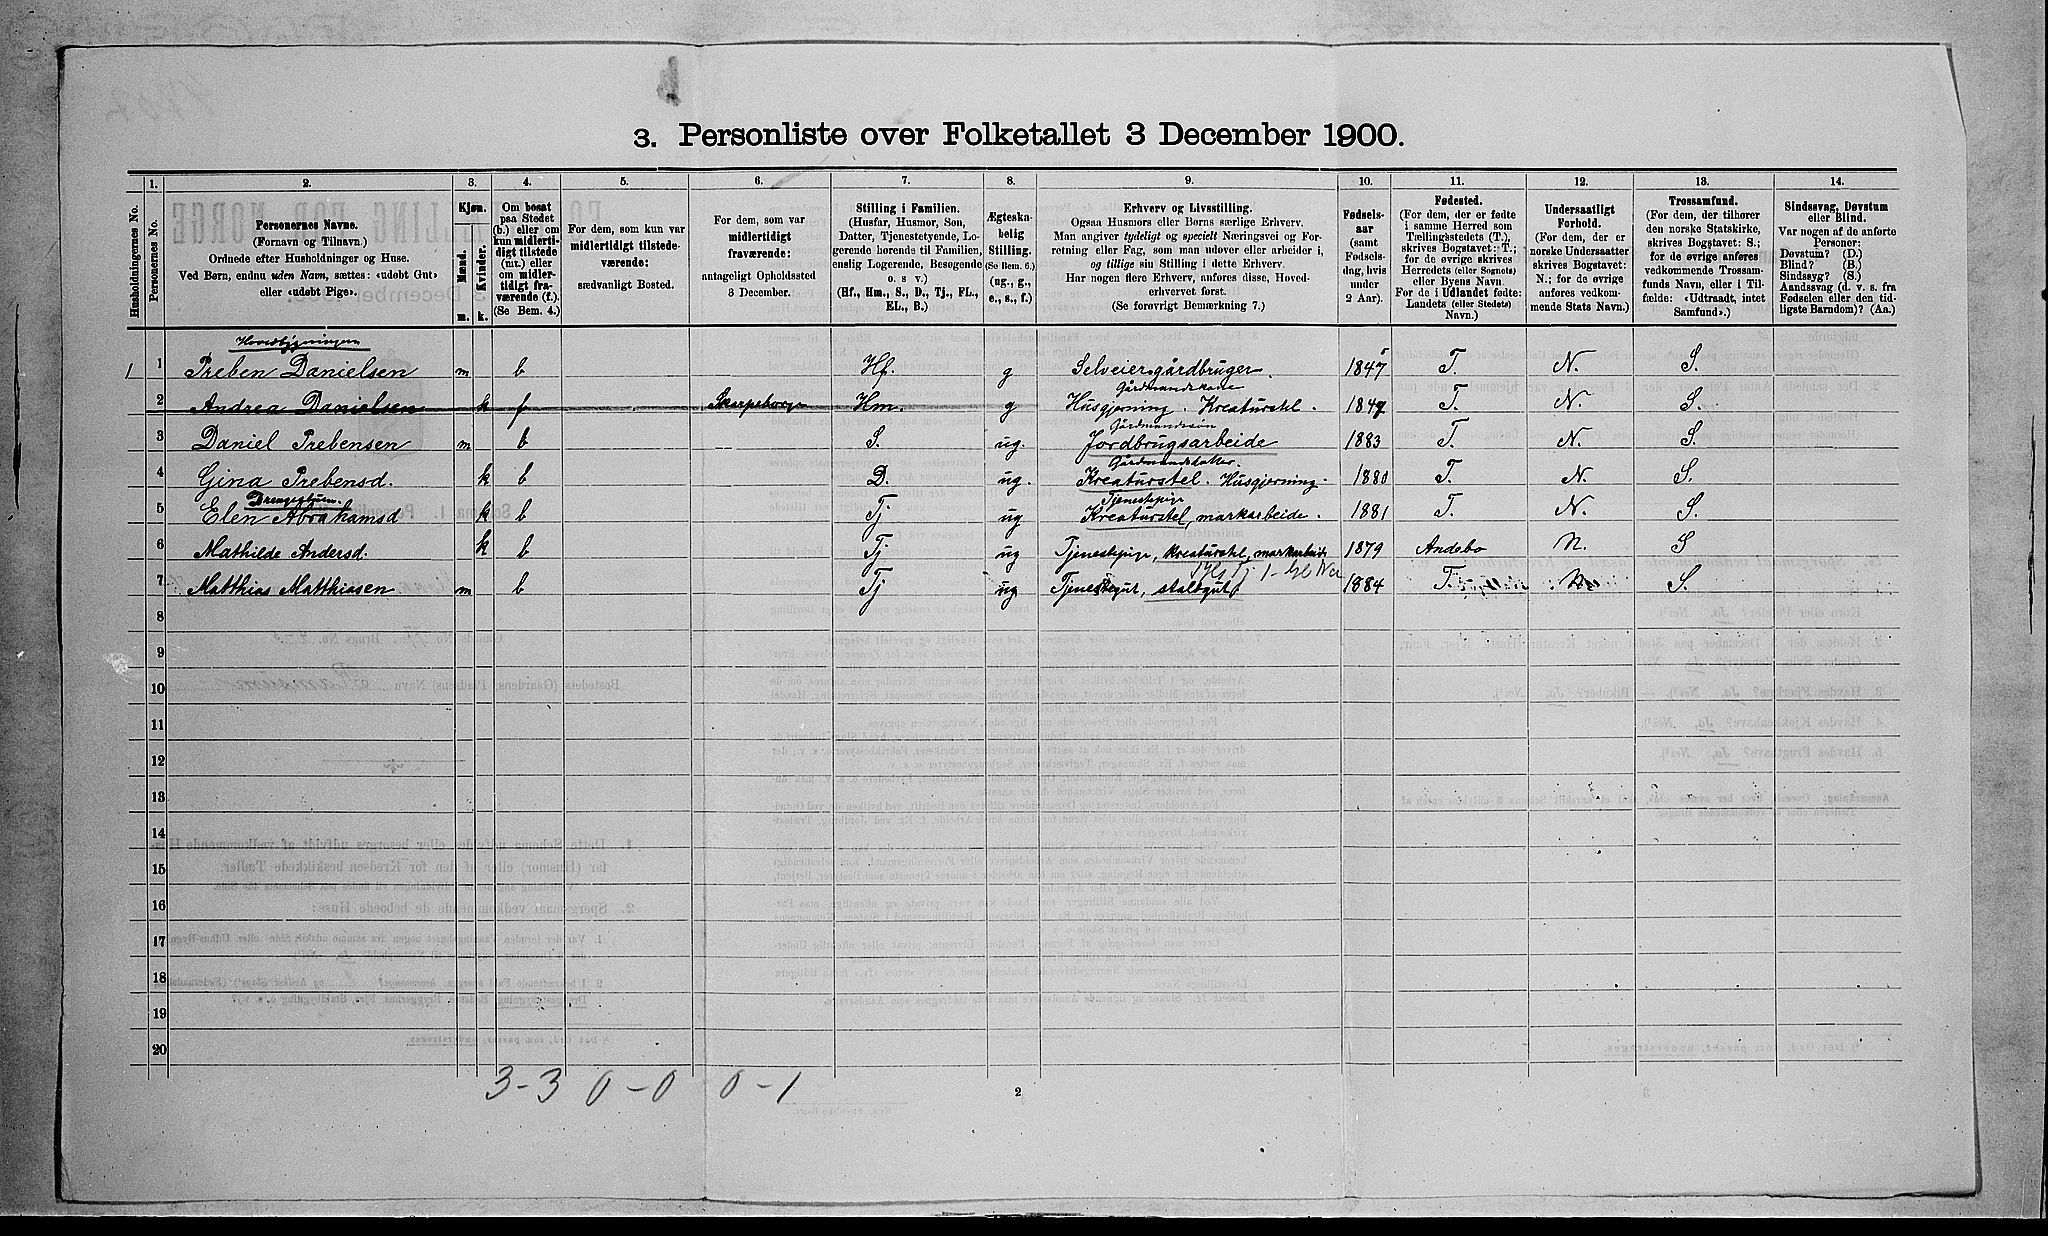 3. Personliste over Folketallet 3 December 1900.
1. 2. 3. 4. 5. 6. 7. 8. 9. 10. 11. 12. 13. 14.
Husholdningernes No.
Personernes No.
Personernes Navne.
(Fornavn og Tilnavn.)
Ordnede efter Husholdninger og Huse.
Ved Børn, endnu uden Navn, sættes: «udøbt Gut»
eller «udøbt Pige».
Kjøn.
Mænd.
Kvinder.
m. k.
Om bosat
paa Stedet
(b.) eller om
kun midlerti-
digt tilstede
(mt.) eller
om midler-
tidigt fra-
værende (f.).
(Se Bem. 4.)
For dem, som kun var
midlertidigt tilstede-
værende:
sædvanligt Bosted.
For dem, som var
midlertidigt
fraværende:
antageligt Opholdssted
3 December.
Stilling i Familien.
(Husfar, Husmor, Søn,
Datter, Tjenestetyende, Lo-
gerende hørende til Familien,
enslig Logerende, Besøgende
o. s. v.)
(Hf., Hm., S., D., Tj., FL.,
EL., B.)
Ægteska-
belig
Stilling.
(Se Bem. 6.)
(ug., g.,
e., s., f.)
Erhverv og Livsstilling.
Ogsaa Husmors eller Børns særlige Erhverv.
Man angiver tydeligt og specielt Næringsvei og For-
retning eller Fag, som man udøver eller arbeider i,
og tillige sin Stilling i dette Erhverv.
Har nogen flere Erhverv, anføres disse, Hoved-
erhvervet først.
(Se forøvrigt Bemærkning 7.)
Fødsels-
aar
(samt
Fødsels-
dag, hvis
under
2 Aar).
Fødested.
(For dem, der er fødte
i samme Herred som
Tællingsstedets (T.),
skrives Bogstavet: T.;
for de øvrige skrives
Herredets (eller Sognets)
eller Byens Navn.
For de i Udlandet fødte:
Landets (eller Stedets)
Navn.)
Undersaatligt
Forhold.
(For dem, der er
norske Undersaatter
skrives Bogstavet:
N.; for de øvrige
anføres vedkom-
mende Stats Navn.)
Trossamfund.
(For dem, der tilhører
den norske Statskirke,
skrives Bogstavet: S.;
for de øvrige anføres
vedkommende Trossam-
funds Navn, eller i Til-
fælde: «Udtraadt, intet
Samfund».)
Sindssvag, Døvstum
eller Blind.
Var nogen af de anførte
Personer:
Døvstum? (D.)
Blind? (B.)
Sindssyg? (S.)
Aandssvag (d. v. s. fra
Fødselen eller den tid-
ligste Barndom)? (Aa.)
Hovedbygningen
1 1 Preben Danielsen m b Hf. g Selveier gårdbruger. 1847 T. N. S.
Gårdmandskone
2 Andrea Danielsen k f Skarpeborge Hm. g Husgjerning. Kreaturstel. 1847 T. N. S.
Gårdmandssøn
3 Daniel Prebensen m b S. ug. Jordbrugsarbeide 1883 T. N. S.
Gårdmandsdatter.
4 Gina Prebensd. k b D. ug. Kreaturstel. Husgjerning. 1880 T. N. S.
Drengestuen. Tjenestepige
5 Elen Abrahamsd k b Tj ug Kreaturstel, markarbeide. 1881 T. N. S.
6 Mathilde Andersd. k b Tj ug Tjenestepige, kreaturstel, markarbeide 1879 Andebo N. S
7 Matthias Matthiasen m b Tj ug Tjenestegut, staldgut 1884 T. N. S.
8
9
10
11
12
13
14
15
16
17
18
19
20
3-3 0-0 0-1
2